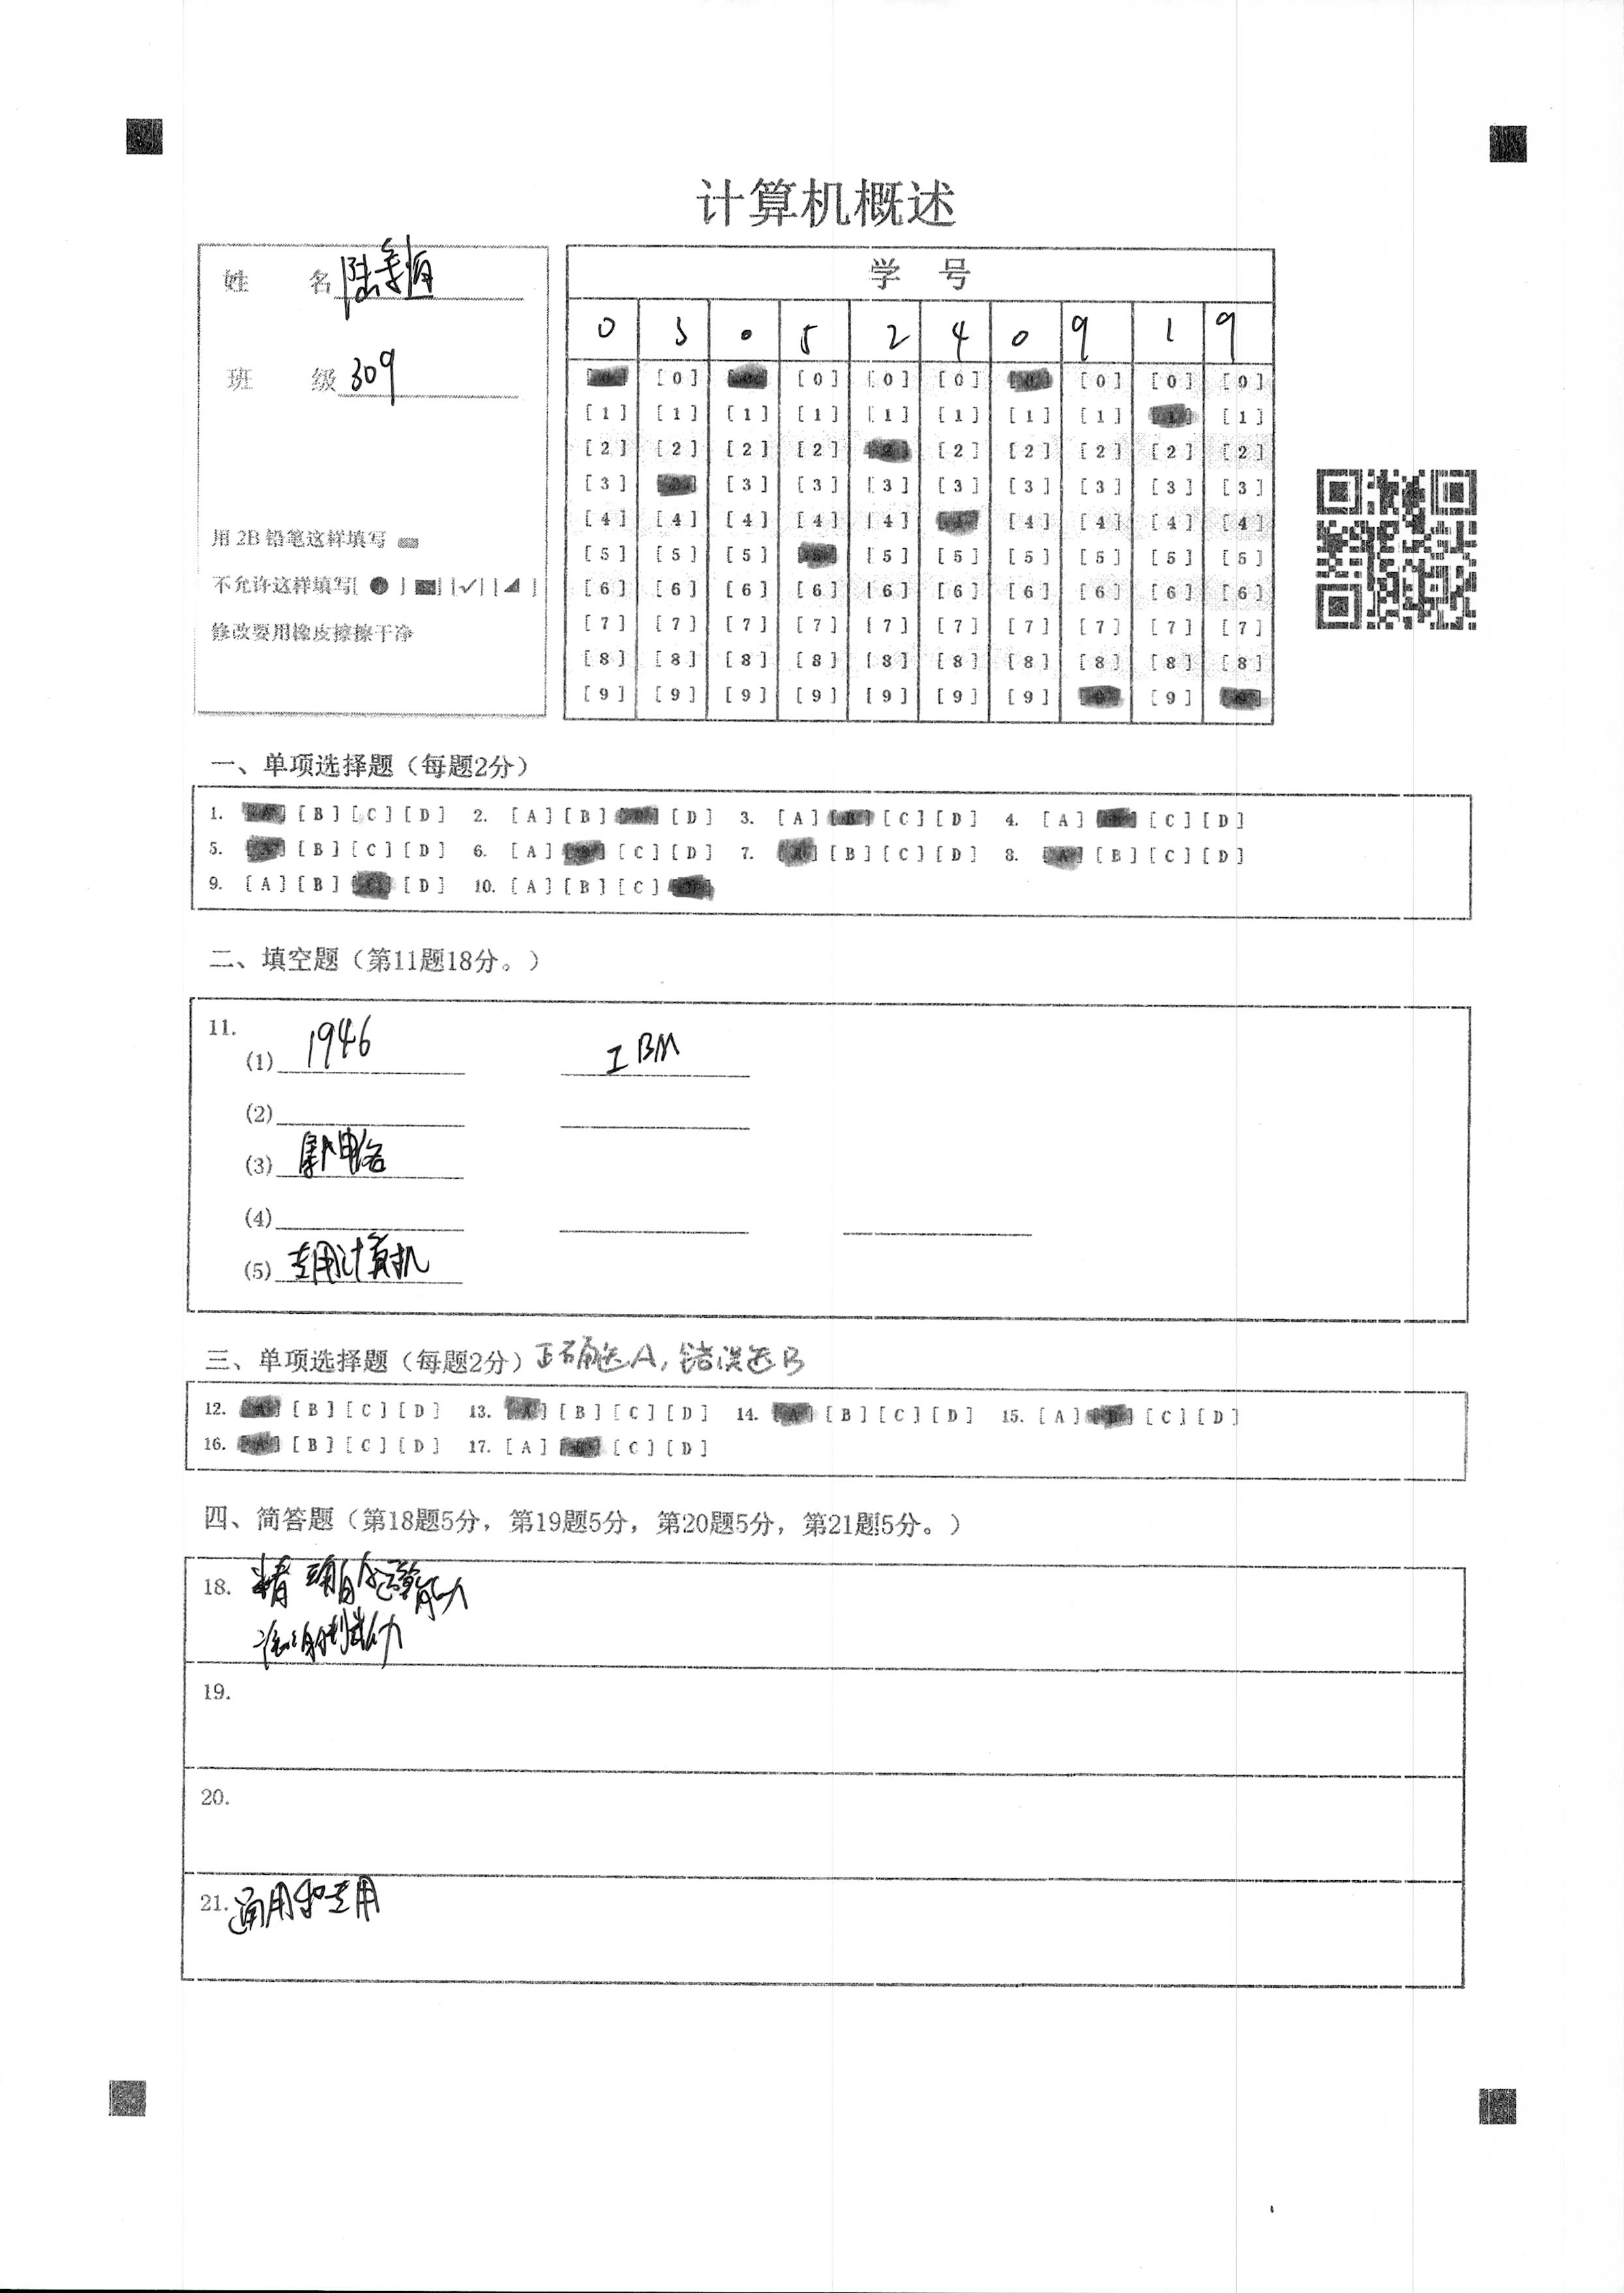 计算机概述
姓 名
班 级 309
用 2B 铅笔这样填写
不允许这样填写[ ● ] [■] [✓] [◢ ]
修改要用橡皮擦擦干净
学 号
0 3 0 5 2 4 0 9 1 9
[0] [0] [0] [0] [0] [0] [0]
[1] [1] [1] [1] [1] [1] [1] [1] [1] [1]
[2] [2] [2] [2] [2] [2] [2] [2] [2]
[3] [3] [3] [3] [3] [3] [3] [3] [3]
[4] [4] [4] [4] [4] [4] [4] [4] [4]
[5] [5] [5] [5] [5] [5] [5] [5] [5]
[6] [6] [6] [6] [6] [6] [6] [6] [6] [6]
[7] [7] [7] [7] [7] [7] [7] [7] [7] [7]
[8] [8] [8] [8] [8] [8] [8] [8] [8] [8]
[9] [9] [9] [9] [9] [9] [9] [9]
一、单项选择题（每题2分）
1. [A] [B] [C] [D] 2. [A] [B] [D] 3. [A] [B] [C] [D] 4. [A] [C] [D]
5. [A] [B] [C] [D] 6. [A] [B] [C] [D] 7. [A] [B] [C] [D] 8. [A] [B] [C] [D]
9. [A] [B] [C] [D] 10. [A] [B] [C]
二、填空题（第11题18分。）
11.
(1) 1946 IBM
(2)
(3)
(4)
(5) 专用计算机
三、单项选择题（每题2分）正确选A，错误选B
12. [A] [B] [C] [D] 13. [A] [B] [C] [D] 14. [A] [B] [C] [D] 15. [A] [B] [C] [D]
16. [A] [B] [C] [D] 17. [A] [C] [D]
四、简答题（第18题5分，第19题5分，第20题5分，第21题5分。）
18. 精确的运算能力
19.
20.
21. 通用和专用